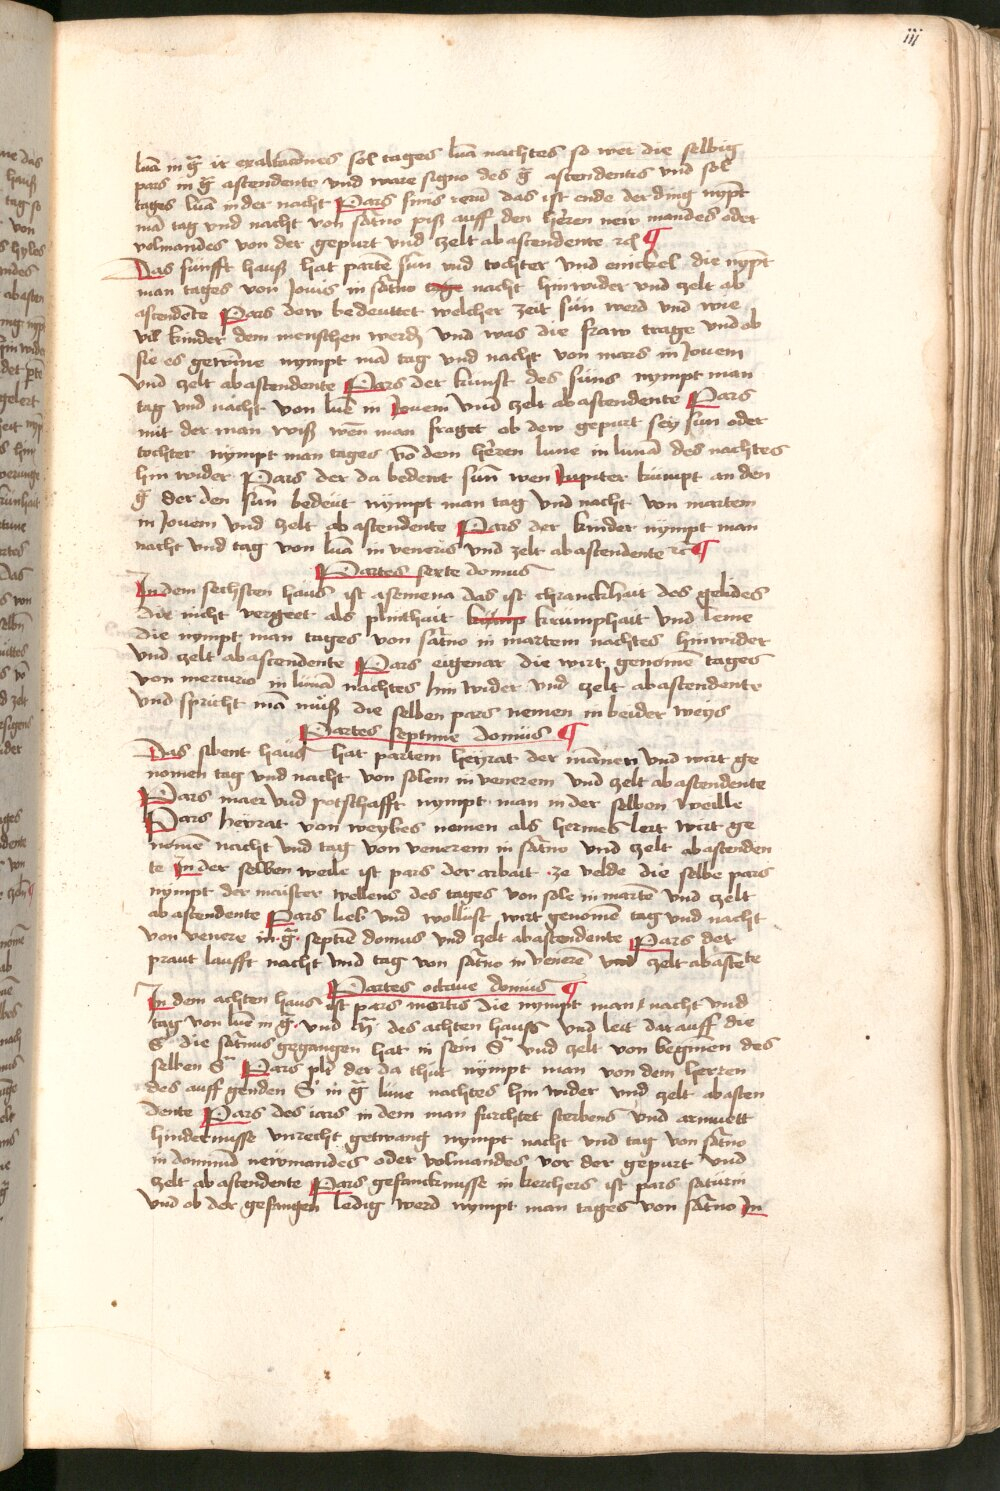 iij
luā in g̃ ir exaltacōnes sol tages luā nachtes so wer die selbig
pars in g̃ astendente vnd ware signo des g̃ astendentis vnd sol
tages luā in der nacht Pars finis rerū das ist ende der ding nympt
mā tag vnd nacht von sātno piß auff den herren new mandes oder
volmandes von der gepurt vnd zelt ab astendente rc̄ ¶
Das funfft hauß hat partē sun vnd tochter vnd enickel die nympt
man tages von Jouis in sātno tage nacht hin wider vnd zelt ab
astendēte Pars dew bedeuttet welcher zeit sun werd vnd wie
vil kinder dem menschen werdn̄ vnd was die fraw trage vnd ob
sie es gewīne nympt mā tag vnd nacht von mars in Jouem
vnd zelt ab astendente Pars der kunst des suns nympt man
tag vnd nacht von luē in Jouem vnd zelt ab astendente Pars
mit der man wiß wen man fraget ob dew gepurt sey sun oder
tochter nympt man tages vō dem herren lune in lunā des nachtes
hin wider Pars der da bedeut sun wen Jupiter kumpt an den
g̃ der den sun bedeut nympt man tag vnd nacht von martem
in Jouem vnd zelt ab astendente Pars der kinder nympt man
nacht vnd tag von luā in veneris vnd zelt ab astendente rc̄ ¶
Partes sexte domus
In dem sechsten haus ist asemena das ist chranckhait des gelides
die nicht vergeet als plinthait krump krumphait vnd leme
die nympt man tages von sātno in martem nachtes hin wider
vnd zelt ab astendente Pars eigenar die wirt genomē tages
von mercurio in lunā nachtes hin wider vnd zelt ab astendente
vnd spricht mā muß die selben pars nemen in beider weys
Partes septime domus ¶
Das sibent haus hat partem heyrat der mānen vnd wirt ge
nomen tag vnd nacht von solem in venerem vnd zelt ab astendente
Pars maer vnd potschafft nympt man in der selben weille
Pars heyrat von weybes nemen als hermes lert wirt ge
nomē nacht vnd tag von venerem in sātno vnd zelt ab astenden
te In der selben weile ist pars der arbait ze velde die selbe pars
nympt der mauster wellens des tages von sole in martē vnd zelt
ab astendente Pars lieb vnd wollust wirt genomē tag vnd nacht
von venere in g̃ septīe domus vnd zelt ab astendente Pars der
praut laufft nacht vnd tag von sātno in venerē vnd zelt ab astēte
Partes octaue domus ¶
In dem achten haus ist pars mortis die nympt man nacht vnd
tag von luē in g̃ vnd des achten hauß vnd leit dar auff die
S die sātnus gegangen hat in sein S vnd zelt von beginen des
selben S Pars pld der da thut nympt man von dem herren
des auff genden S in g̃ lune nachtes hin wider vnd zelt ab asten
dente Pars des iars in dem man furchtet sterbens vnd armuett
hindernusse vnrecht getwang nympt nacht vnd tag von sātno
in dominū newmandes oder volmandes vor der gepurt vnd
zelt ab astendente Pars gefancknusse in kerchers ist pars saturni
vnd ob der gefangen ledig werd nympt man tages von sātno In